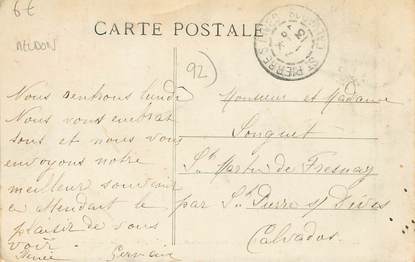 6€
CARTE POSTALE
MEUDON
92)
Nous rentrons lundi
Nous vous embras
sons et nous vous
envoyons notre
meilleur souvenir
en attendant le
plaisir de vous
voir
Germain
Monsieur et Madame
Souquet
St Martin de Fresnay
par St Pierre s/ Dives
Calvados